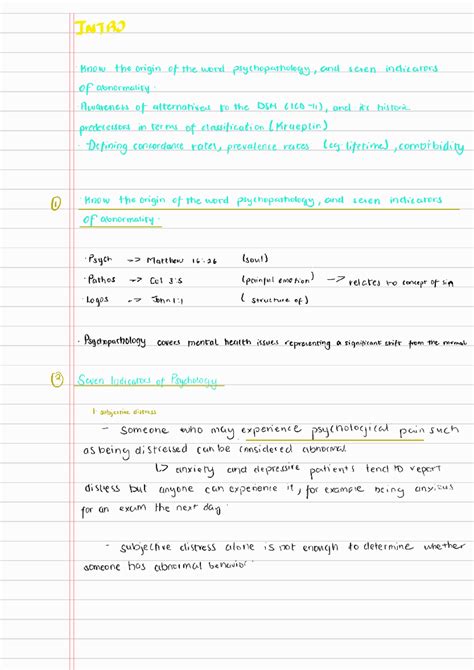 INTRO
Know the origin of the word psychopathology, and seven indicators
of abnormality.
Awareness of alternatives to the DSM (ICD-11), and its historic
predecessors in terms of classification (Kraeplin)
· Defining concordance rates, prevalence rates (eg lifetime), comorbidity
① · Know the origin of the word psychopathology, and seven indicators
of abnormality.
· Psych → Matthew 16:26 (soul)
· Pathos → Col 3:5 (painful emotion) → relates to concept of sin
· Logos → John 1:1 (structure of)
· Psychopathology covers mental health issues representing a significant shift from the normal
② Seven Indicators of Psychology
1 subjective distress
- Someone who may experience psychological pain such
as being distressed can be considered abnormal
↳ anxiety and depressive patients tend to report
distress but anyone can experience it, for example being anxious
for an exam the next day.
- subjective distress alone is not enough to determine whether
someone has abnormal behavior.